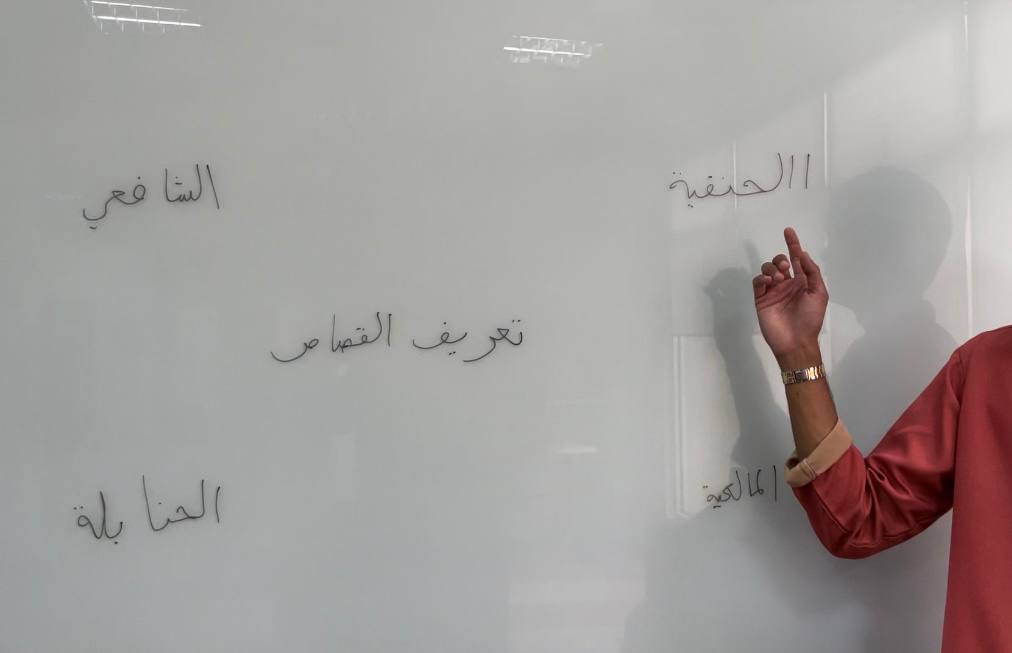 االحنفية
الشافعي
تعريف القصاص
المالكية
الحنابلة